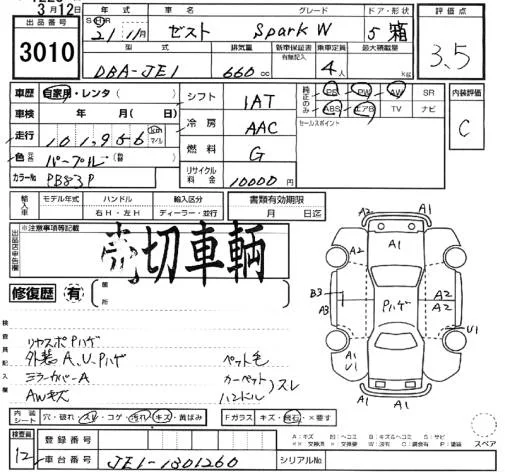 3月12日
出品番号
3010
年式 車名 グレード ドア・形状 評価点
21 11月 ゼスト Spark W 5 箱 3.5
型式 排気量 新車保証書 有無記入 乗車定員 最大積載量
DBA-JE1 660cc 4人 kg
車歴 自家用・レンタ( ) シフト 1AT 純正のみ PS PW AW SR 内装評価
ABS エアB TV ナビ
車検 年 月( 日) 冷房 AAC セールスポイント C
走行 101,956 km マイル
色 パープル(替 ) 燃料 G
カラーNo PB83P リサイクル料金 10000円
輸入車 モデル年式 ハンドル 輸入区分 書類有効期限
右H・左H ディーラー・並行 月 日迄
※注意事項等記載
売切車輌
修復歴 有 箇所
検査員記入欄
リヤスポPハゲ
外装A、U、Pハゲ ペット毛
ミラーカバーA カーペット
AWキズ ハンドル スレ
A2 A1 A1
A2
B3 A3 Pハゲ A2 A2
U1
A1 U1 A1 A1
内装シート 穴・破れ・スレ・コゲ・汚れ・キズ・黄ばみ Fガラス キズ・飛石・×要す
スペア
検査員 12 登録番号
車台番号 JE1-1301260 シリアルNo